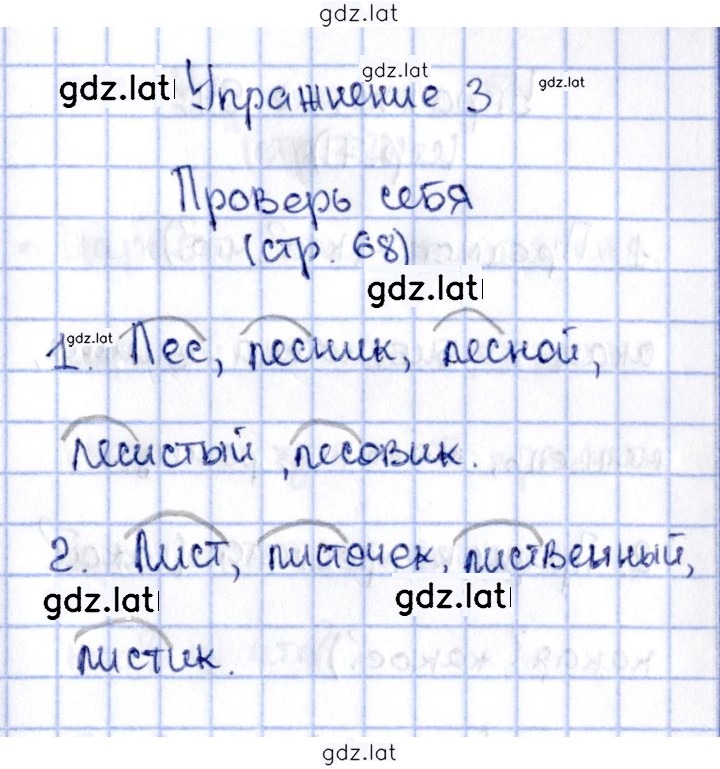 gdz.lat
gdz.lat Упражнение 3 gdz.lat gdz.lat
Проверь себя
(стр. 68)
gdz.lat
1. gdz.lat Лес, лесник, лесной,
лесистый, лесовик.
2. Лист, листочек, лиственный,
gdz.lat gdz.lat
листик.
gdz.lat